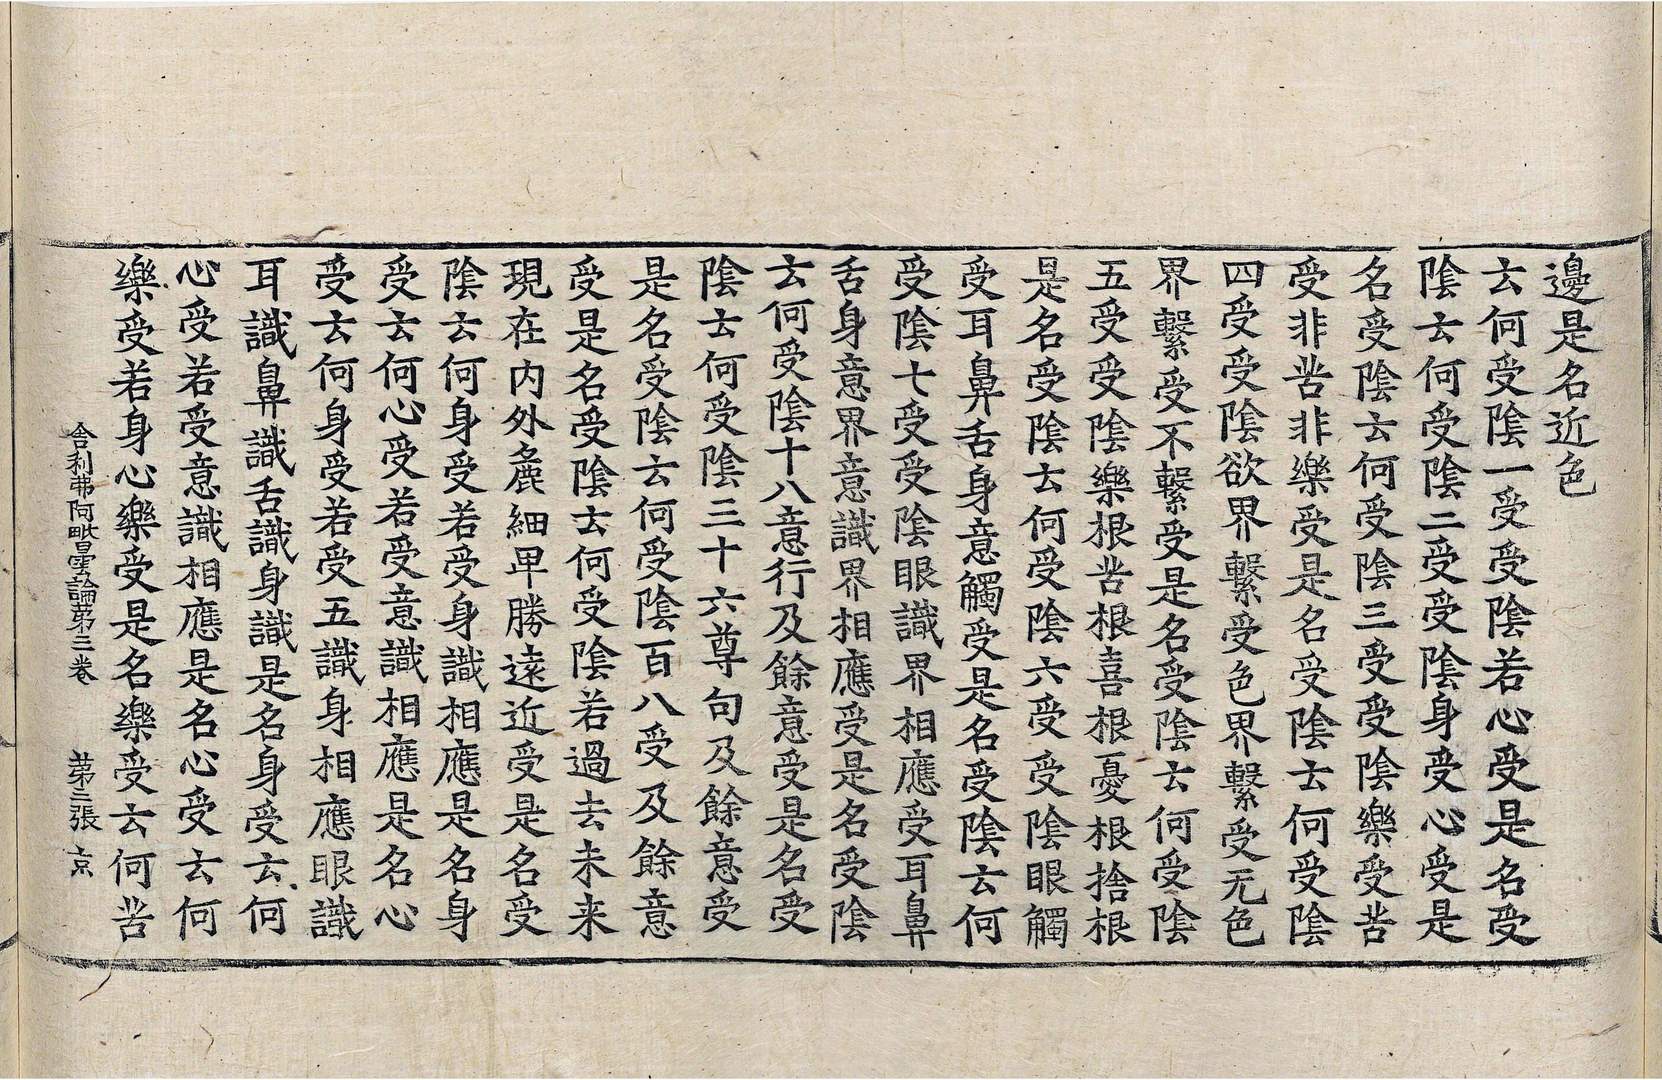 邊是名近色
云何受陰一受受陰若心受是名受
陰云何受陰二受受陰身受心受是
名受陰云何受陰三受受陰樂受苦
受非苦非樂受是名受陰云何受陰
四受受陰欲界繫受色界繫受无色
界繫受不繫受是名受陰云何受陰
五受受陰樂根苦根喜根憂根捨根
是名受陰云何受陰六受受陰眼觸
受耳鼻舌身意觸受是名受陰云何
受陰七受受陰眼識界相應受耳鼻
舌身意界意識界相應受是名受陰
云何受陰十八意行及餘意受是名受
陰云何受陰三十六尊句及餘意受
是名受陰云何受陰百八受及餘意
受是名受陰云何受陰若過去未来
現在内外麁細卑勝遠近受是名受
陰云何身受若受身識相應是名身
受云何心受若受意識相應是名心
受云何身受若受五識身相應眼識
耳識鼻識舌識身識是名身受云何
心受若受意識相應是名心受云何
樂受若身心樂受是名樂受云何苦
舎利弗阿毗曇論苐三卷 苐二張 京